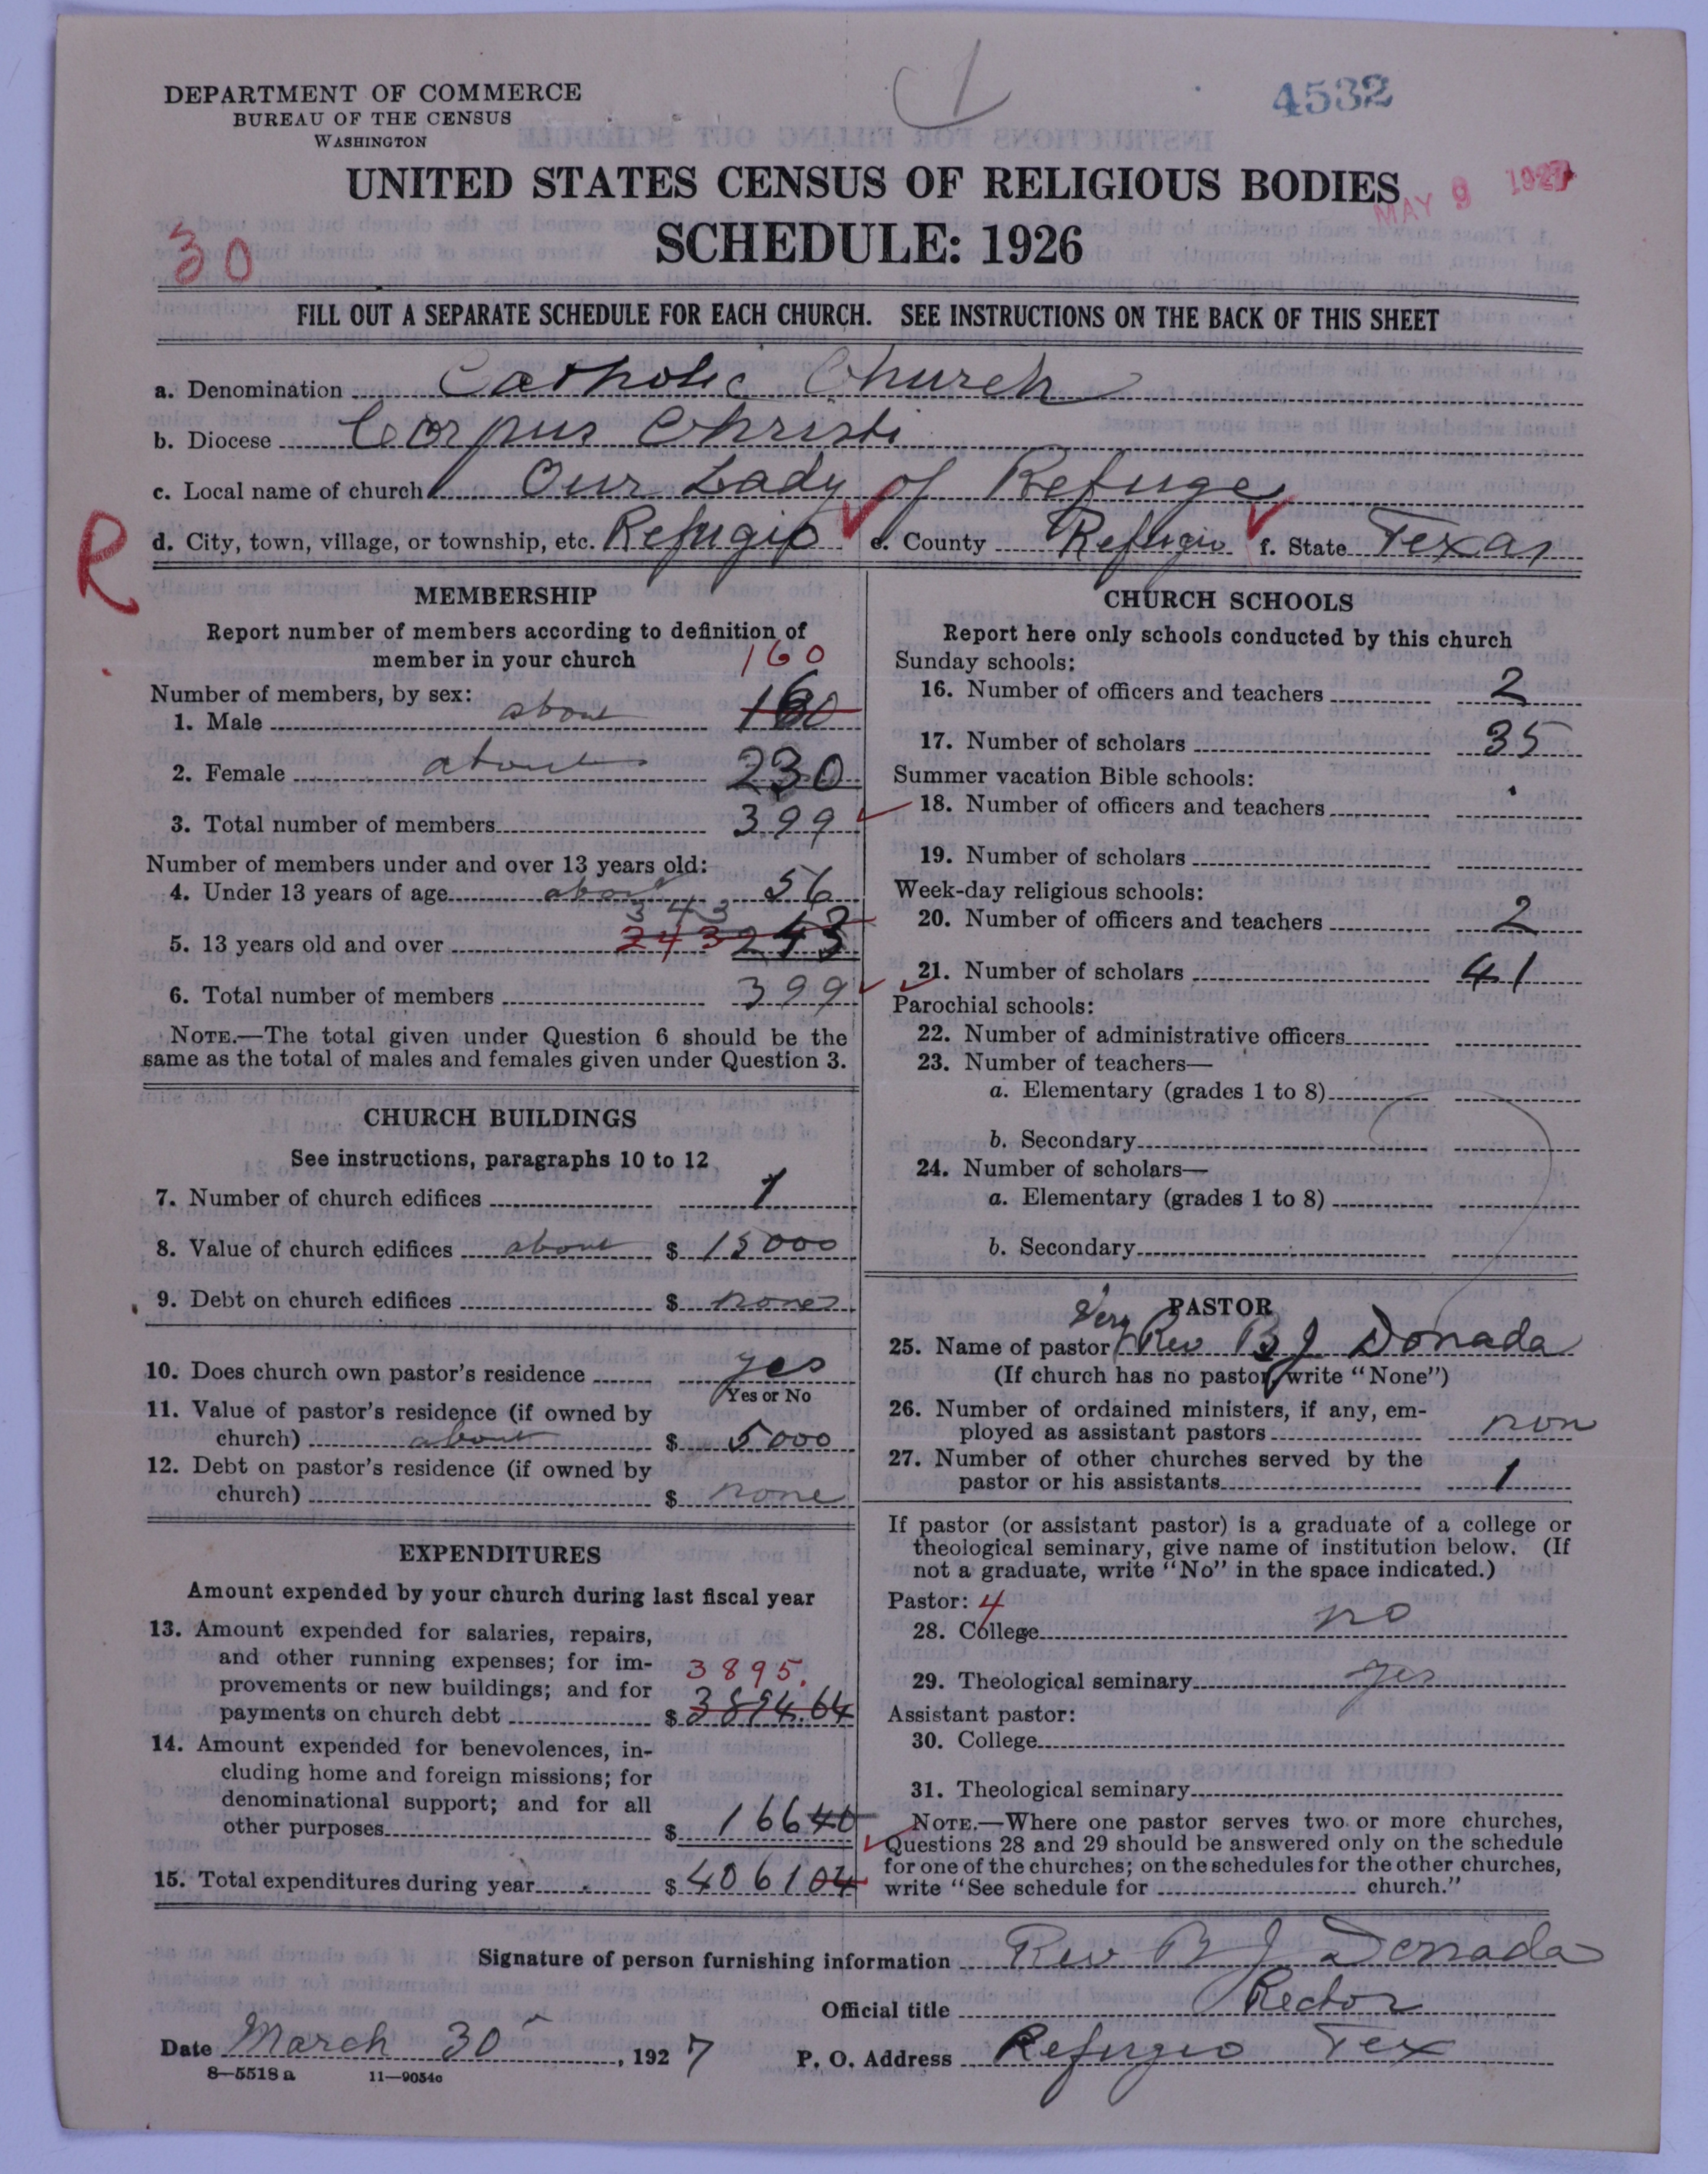 4532
DEPARTMENT OF COMMERCE
BUREAU OF THE CENSUS
WASHINGTON
UNITED STATES CENSUS OF RELIGIOUS BODIES
MAY 9 1927
SCHEDULE: 1926
30
FILL OUT A SEPARATE SCHEDULE FOR EACH CHURCH. SEE INSTRUCTIONS ON THE BACK OF THIS SHEET
a. Denomination Catholic Church
b. Diocese Corpus Christi
c. Local name of church Our Lady of Refuge
R
d. City, town, village, or township, etc. Refugio e. County Refugio f. State Texas
MEMBERSHIP
Report number of members according to definition of
member in your church
160
Number of members, by sex:
1. Male about 160
2. Female about 230
3. Total number of members 399
Number of members under and over 13 years old:
4. Under 13 years of age about 56
343
5. 13 years old and over 243 243
6. Total number of members 399
NOTE.—The total given under Question 6 should be the
same as the total of males and females given under Question 3.
CHURCH BUILDINGS
See instructions, paragraphs 10 to 12
7. Number of church edifices 1
8. Value of church edifices about $ 15000
9. Debt on church edifices $ none
10. Does church own pastor's residence yes
Yes or No
11. Value of pastor's residence (if owned by
church) about $ 5000
12. Debt on pastor's residence (if owned by
church) $ none
EXPENDITURES
Amount expended by your church during last fiscal year
13. Amount expended for salaries, repairs,
and other running expenses; for im-
3895.
provements or new buildings; and for
payments on church debt $ 3894.64
14. Amount expended for benevolences, in-
cluding home and foreign missions; for
denominational support; and for all
other purposes $ 166 40
15. Total expenditures during year $ 4061 04
CHURCH SCHOOLS
Report here only schools conducted by this church
Sunday schools:
16. Number of officers and teachers 2
17. Number of scholars 35
Summer vacation Bible schools:
18. Number of officers and teachers
19. Number of scholars
Week-day religious schools:
20. Number of officers and teachers 2
21. Number of scholars 41
Parochial schools:
22. Number of administrative officers
23. Number of teachers—
a. Elementary (grades 1 to 8)
b. Secondary
24. Number of scholars—
a. Elementary (grades 1 to 8)
b. Secondary
PASTOR
25. Name of pastor Very Rev B J Donada
(If church has no pastor, write "None")
26. Number of ordained ministers, if any, em-
ployed as assistant pastors non
27. Number of other churches served by the
pastor or his assistants 1
If pastor (or assistant pastor) is a graduate of a college or
theological seminary, give name of institution below. (If
not a graduate, write "No" in the space indicated.)
Pastor: 4
28. College no
29. Theological seminary yes
Assistant pastor:
30. College
31. Theological seminary
NOTE.—Where one pastor serves two or more churches,
Questions 28 and 29 should be answered only on the schedule
for one of the churches; on the schedules for the other churches,
write "See schedule for church."
Signature of person furnishing information Rev B J Donada
Official title Rector
Date March 30, 1927 P. O. Address Refugio Tex
8—5518 a 11—9054c